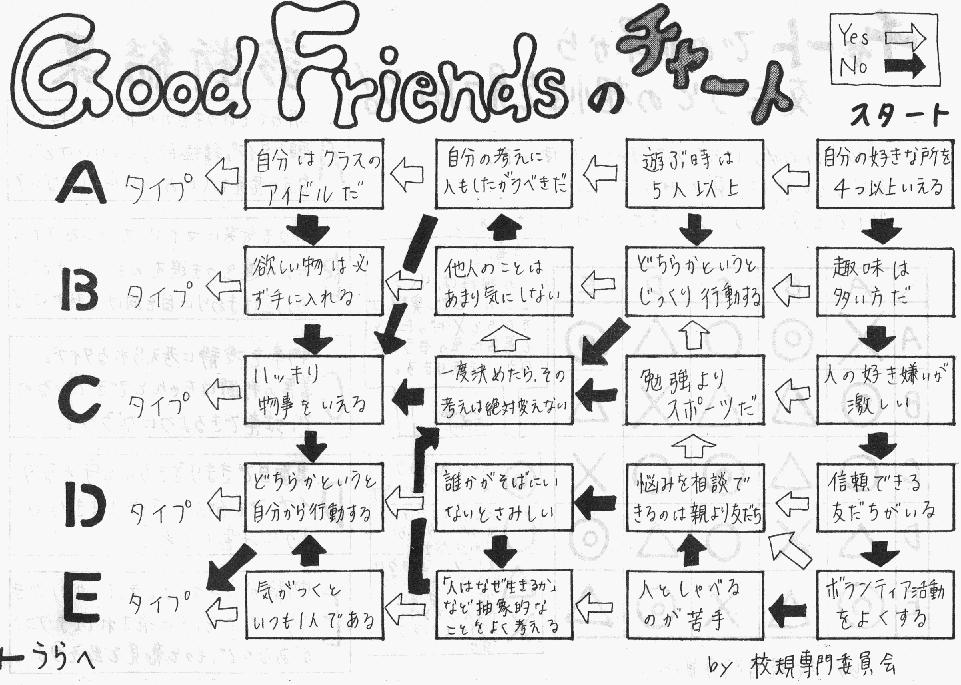 Good Friendsのチャート
Yes
No
スタート
Aタイプ
自分はクラスの
アイドルだ
自分の考えに
人もしたがうべきだ
遊ぶ時は
5人以上
自分の好きな所を
4つ以上いえる
Bタイプ
欲しい物は必
ず手に入れる
他人のことは
あまり気にしない
どちらかというと
じっくり行動する
趣味は
多い方だ
Cタイプ
ハッキリ
物事をいえる
一度決めたら、その
考えは絶対変えない
勉強より
スポーツだ
人の好き嫌いが
激しい
Dタイプ
どちらかというと
自分から行動する
誰かがそばにい
ないとさみしい
悩みを相談で
きるのは親より友だち
信頼できる
友だちがいる
Eタイプ
気がつくと
いつも1人である
「人はなぜ生きるか」
など抽象的な
ことをよく考える
人としゃべる
のが苦手
ボランティア活動
をよくする
うらへ
by 校規専門委員会